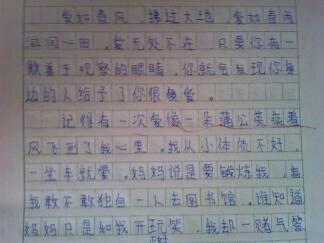 爱如春风，拂过大地，爱如春雨
滋润心田。爱无处不在，只要你有一
敏善于观察的眼睛，你就会发现你身
边的人给予了你很多爱。
记得有一次爱像一朵蒲公英乘着
风飞到了我心里。我从小体质不好，
一坐车就晕。妈妈说是要锻炼我，看
我敢不敢独自一人去图书馆。谁知道
妈妈只是和我开玩笑，我却一赌气答